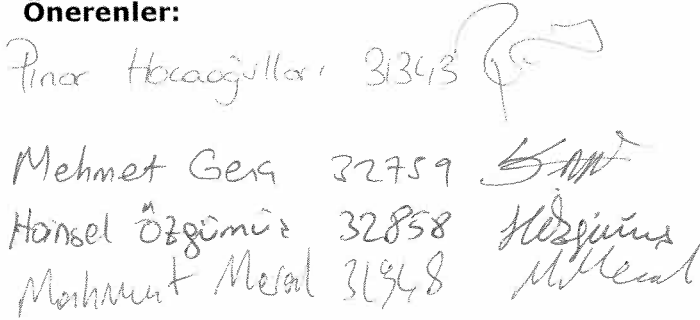 Önerenler:
Pınar Hocaoğulları 31343
Mehmet Gera 32759
Hansel Özgümüş 32858 HÖzgümüş
Mahmut Meral 31948 M.Meral